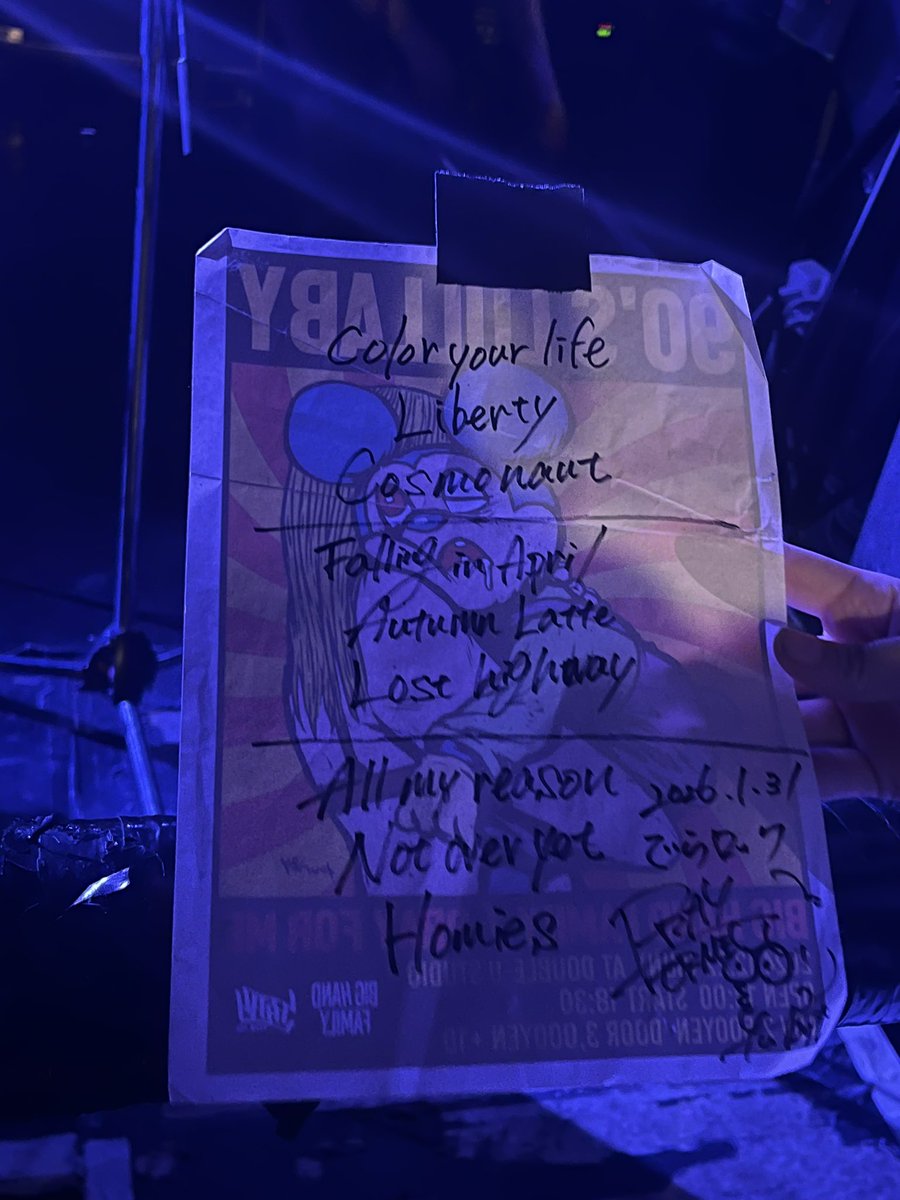 90'S LULLABY
Color your life
Liberty
Cosmonaut
Falling in April
Autumn Latte
Lost highway
All my reason
Not over yet
Homies
2026.1.31
でらロック
PRAY FOR ME
BIG HAND
FAMILY
AT DOUBLE U STUDIO
00 START 18:30
YEN DOOR 3,000YEN +1D